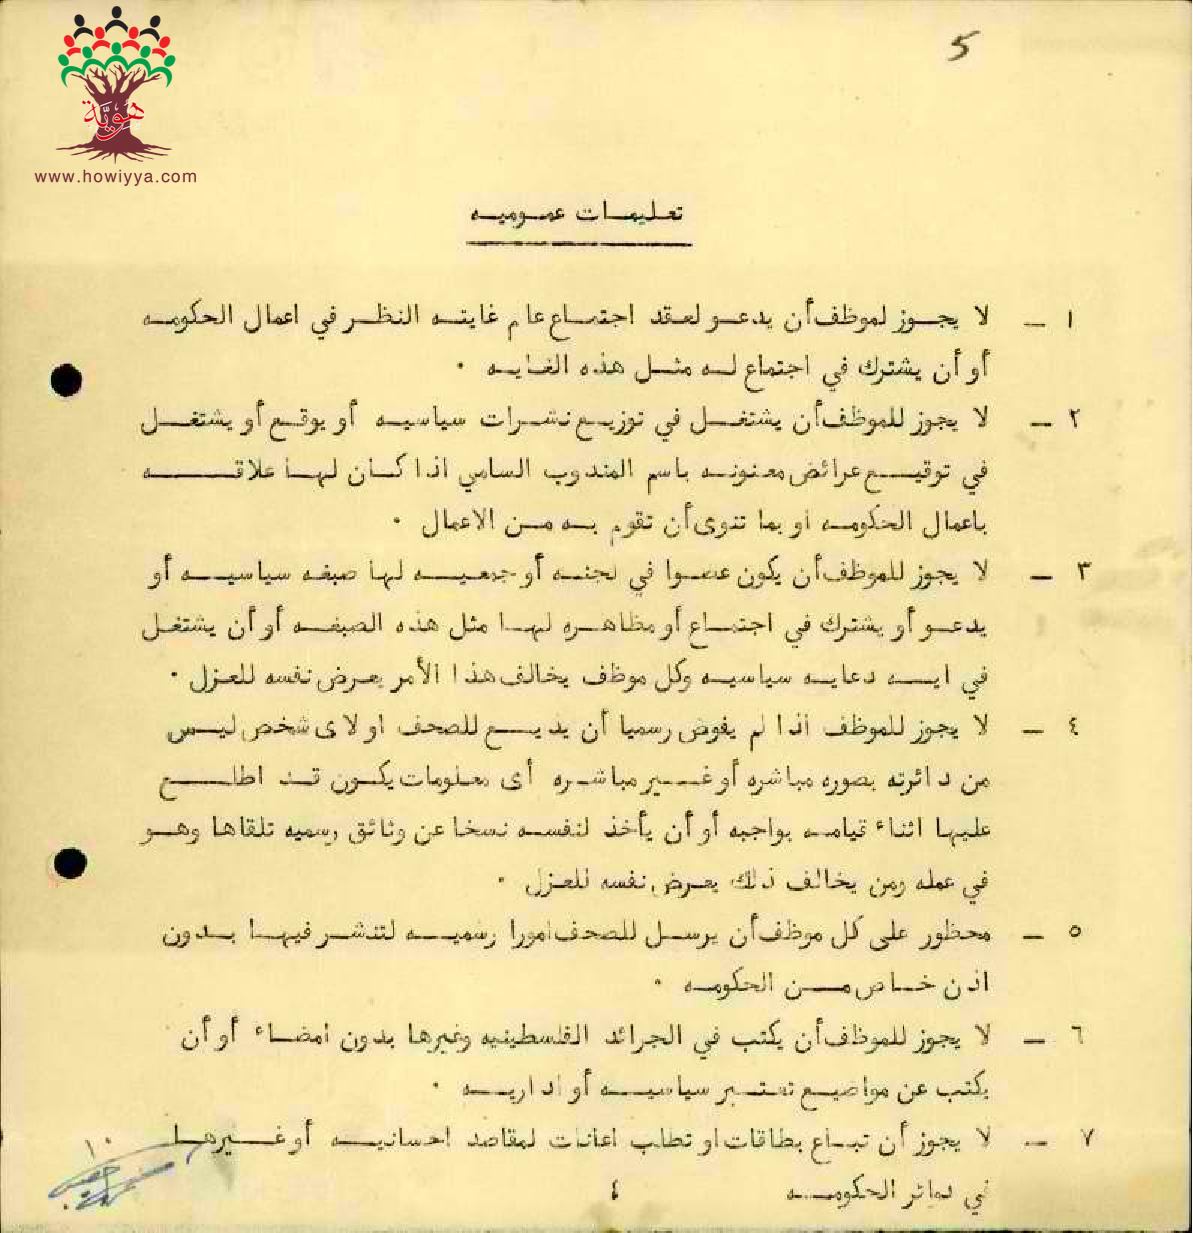 5
هويّة
www.howiyya.com
تعليمات عموميه
١ - لا يجوز لموظف أن يدعو لعقد اجتماع عام غايته النظر في اعمال الحكومه
أو أن يشترك في اجتماع له مثل هذه الغايه .
٢ - لا يجوز للموظف أن يشتغل في توزيع نشرات سياسيه أو يوقع أو يشتغل
في توقيع عرائض معنونه باسم المندوب السامي اذا كان لها علاقه
باعمال الحكومه او بما تنوى أن تقوم به من الاعمال .
٣ - لا يجوز للموظف أن يكون عضوا في لجنه أو جمعيه لها صبغه سياسيه أو
يدعو أو يشترك في اجتماع أو مظاهره لها مثل هذه الصبغه أو أن يشتغل
في ايه دعايه سياسيه وكل موظف يخالف هذا الأمر يعرض نفسه للعزل .
٤ - لا يجوز للموظف اذا لم يفوض رسميا أن يذيع للصحف او لاى شخص ليس
من دائرته بصوره مباشره أو غير مباشره أى معلومات يكون قد اطلع
عليها اثناء قيامه بواجبه أو أن يأخذ لنفسه نسخا عن وثائق رسميه تلقاها وهو
في عمله ومن يخالف ذلك يعرض نفسه للعزل .
٥ - محظور على كل موظف أن يرسل للصحف امورا رسميه لتنشر فيها بدون
اذن خاص من الحكومه .
٦ - لا يجوز للموظف أن يكتب في الجرائد الفلسطينيه وغيرها بدون امضاء أو أن
يكتب عن مواضيع تعتبر سياسيه أو اداريه .
٧ - لا يجوز أن تباع بطاقات او تطلب اعانات لمقاصد احسانيه أو غيرها
في دوائر الحكومه
٤
١٠